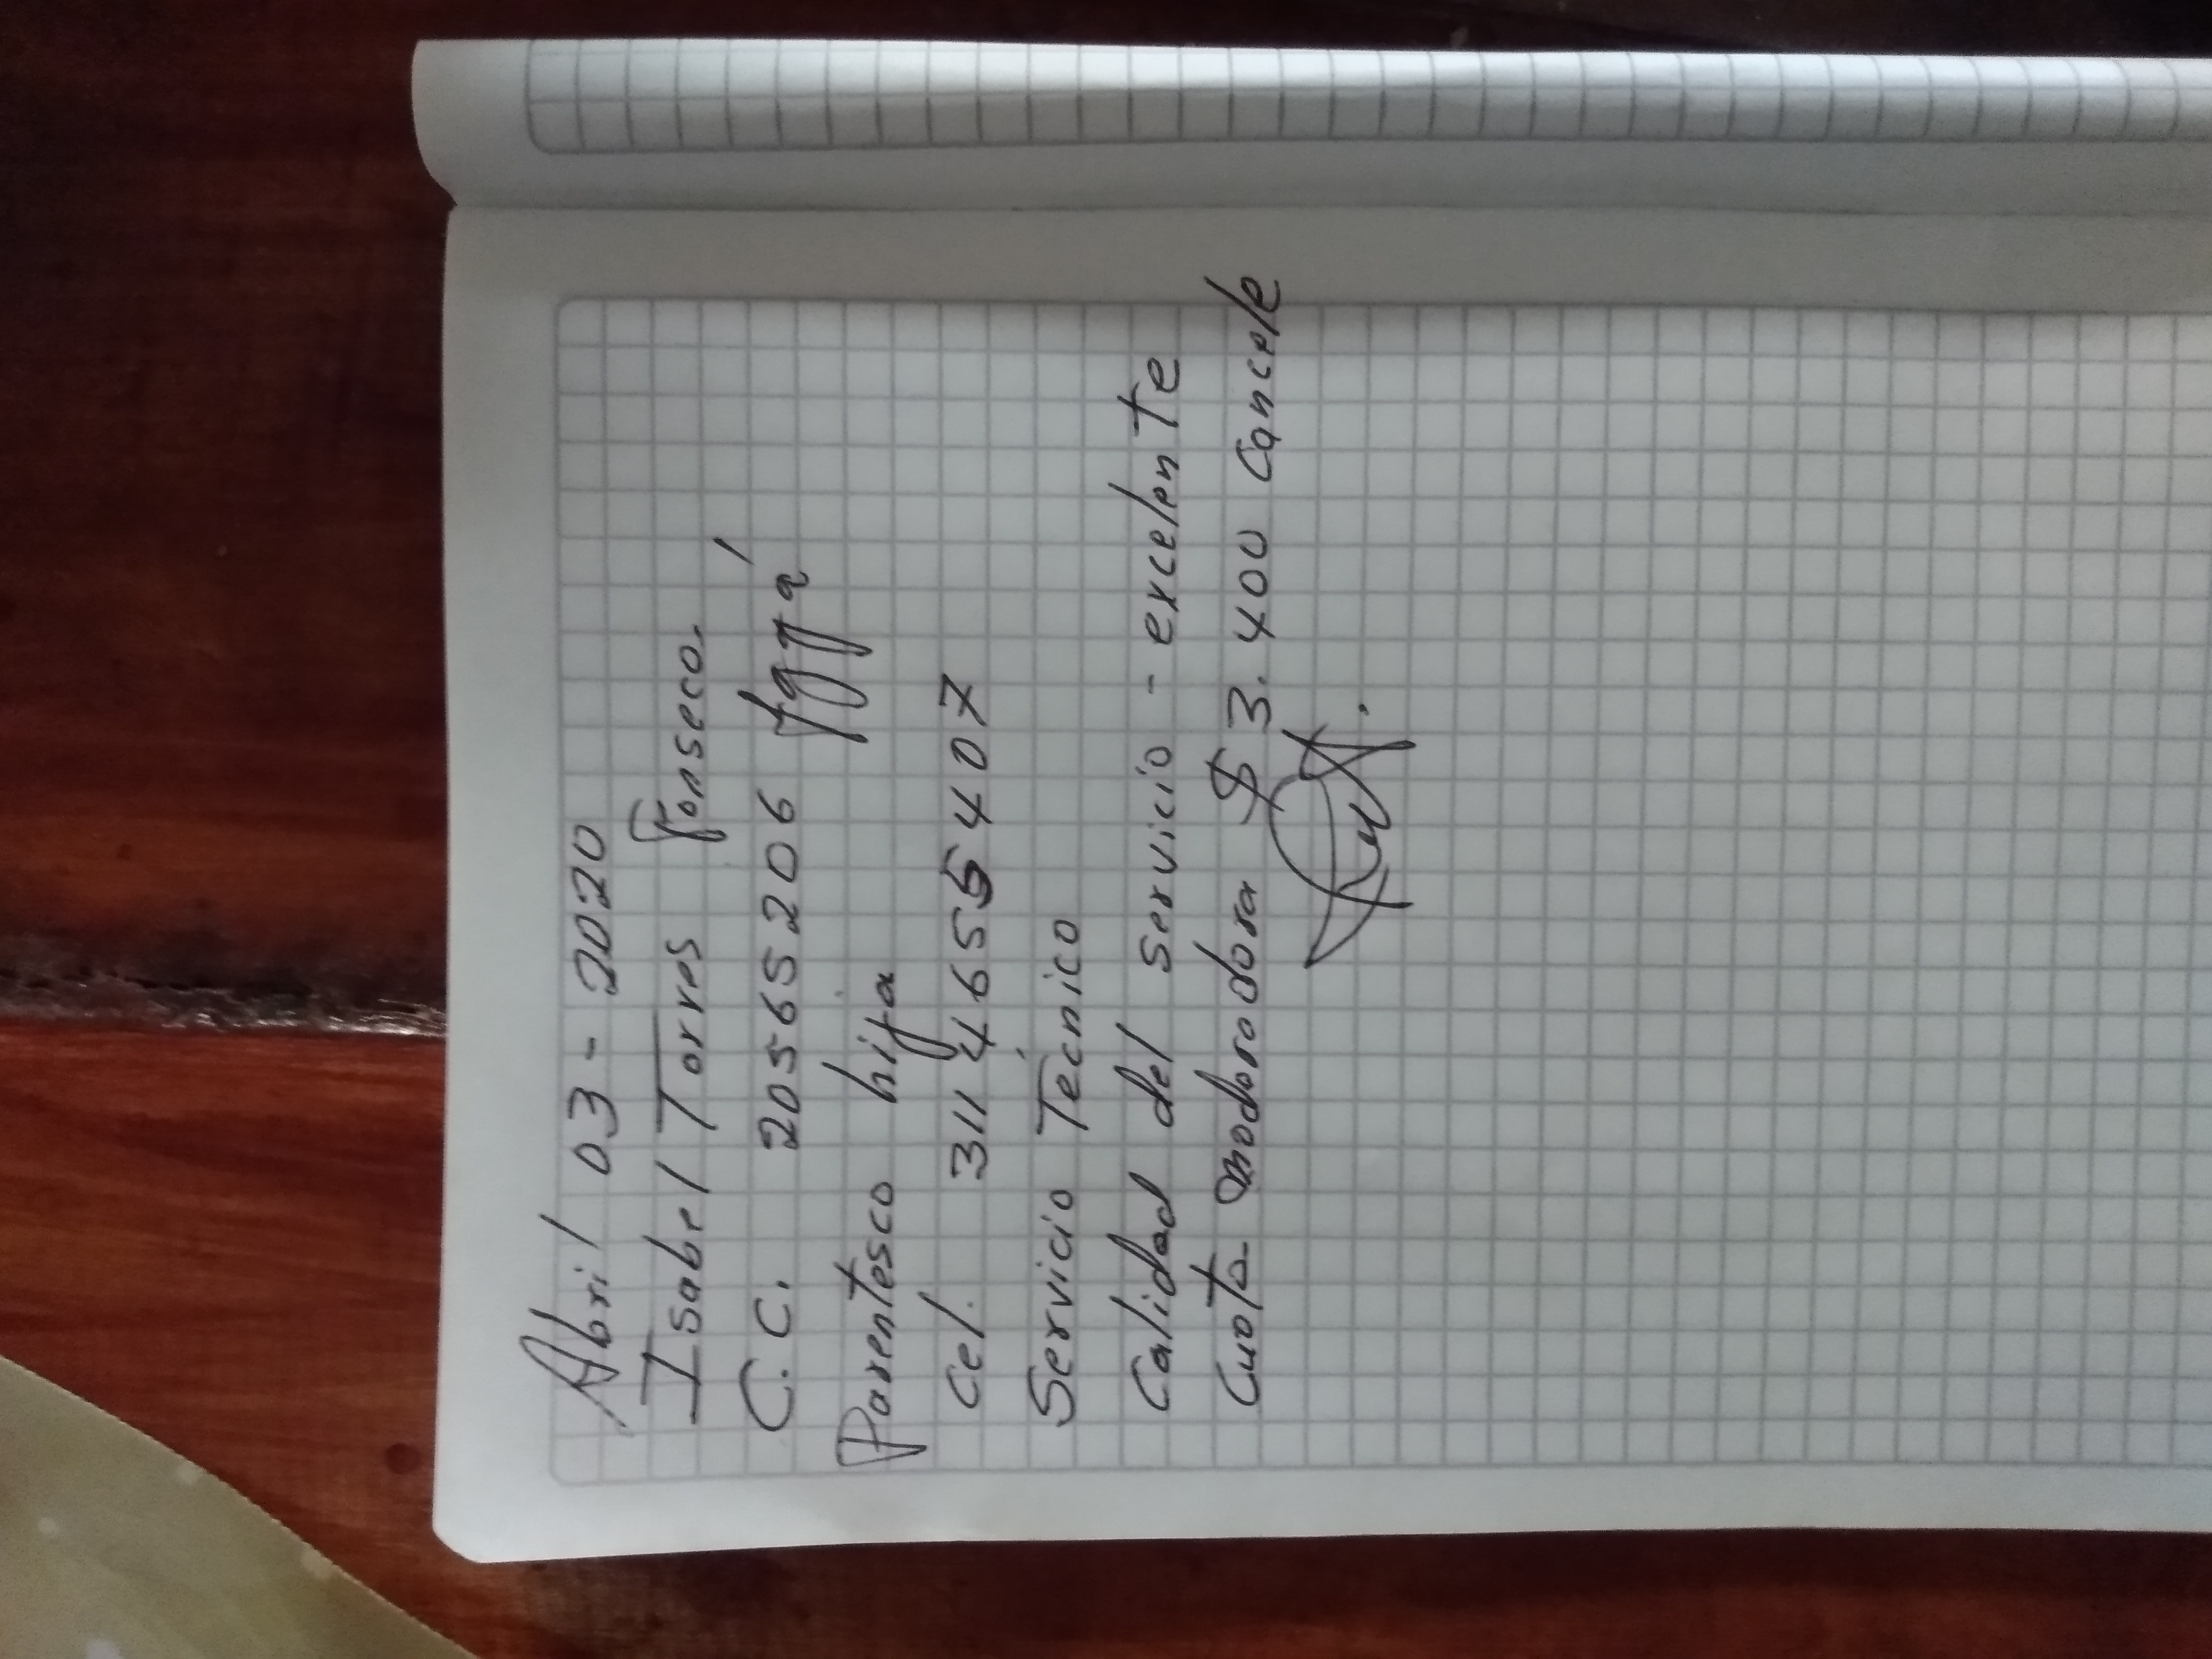 Abril 03 - 2020
Isabel Torres Fonseca.
C.C. 20565206 fggá
Parentesco hija
Cel. 3114655407
Servicio Técnico
Calidad del servicio - excelente
Cuota modoradora $ 3.400 Cancele